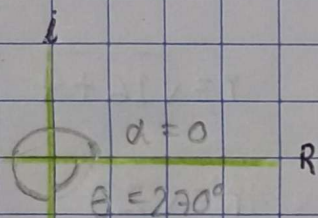 i
α = 0
R
θ = 270°